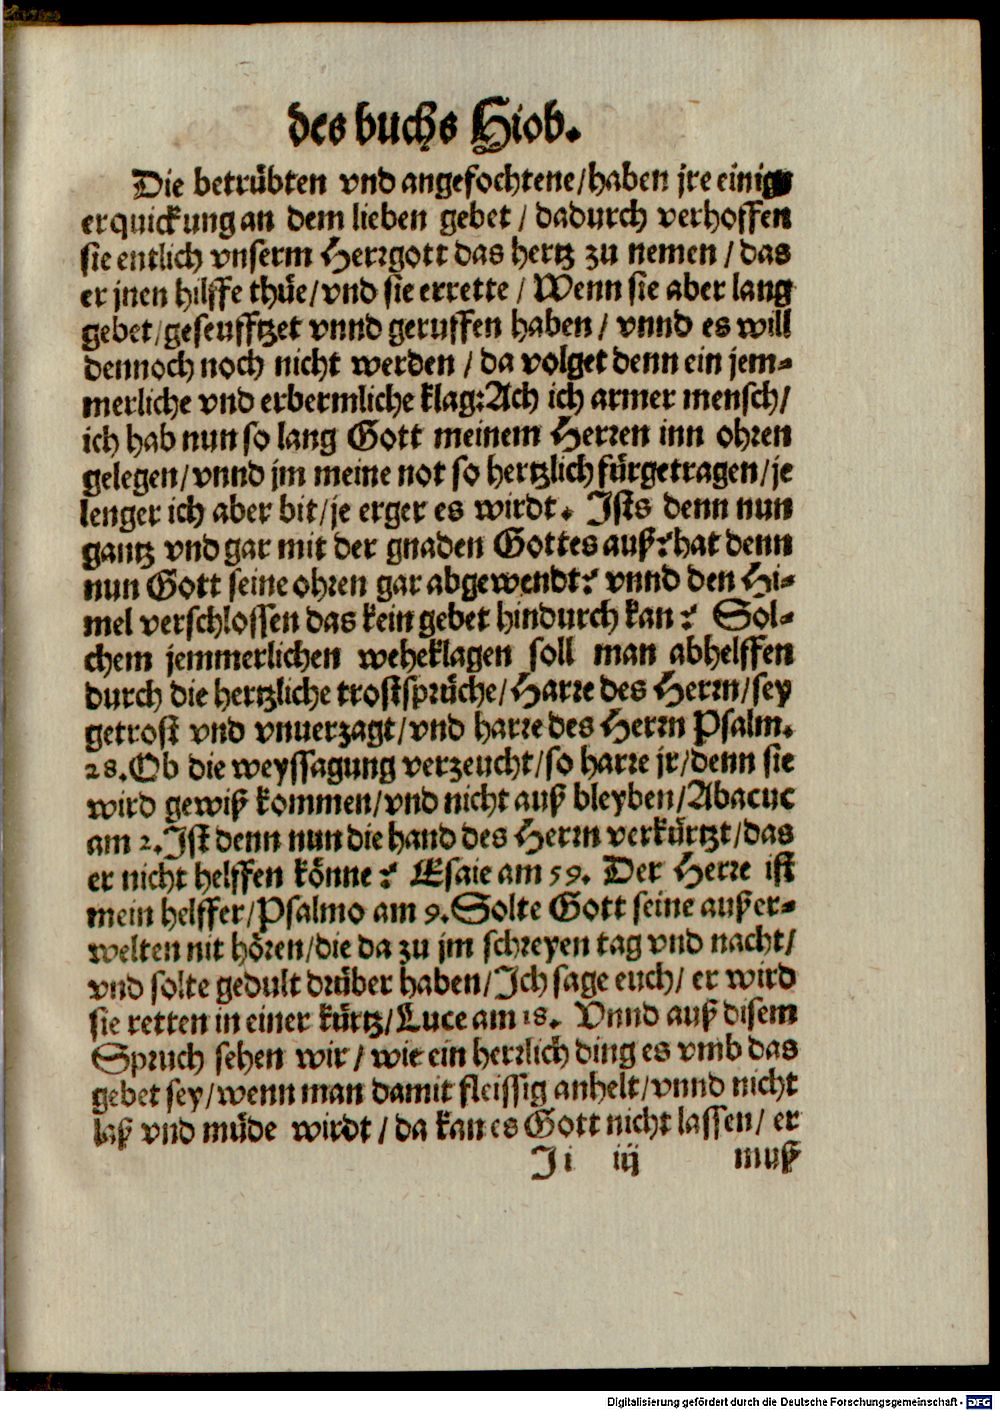 des buchs Hiob.
Die betrübten vnd angefochtene/haben jre einige
erquickung an dem lieben gebet / dadurch verhoffen
sie entlich vnserm Herrgott das hertz zu nemen / das
er jnen hilffe thüe/vnd sie errette / Wenn sie aber lang
gebet/geseufftzet vnnd geruffen haben / vnnd es will
dennoch noch nicht werden / da volget denn ein jem-
merliche vnd erbermliche klag:Ach ich armer mensch/
ich hab nun so lang Gott meinem Herren inn ohren
gelegen/vnnd jm meine not so hertzlich fürgetragen/je
lenger ich aber bit/je erger es wirdt. Ists denn nun
gantz vnd gar mit der gnaden Gottes auß?hat denn
nun Gott seine ohren gar abgewendt? vnnd den Hi-
mel verschlossen das kein gebet hindurch kan? Sol-
chem jemmerlichen weheklagen soll man abhelffen
durch die hertzliche trostsprüche/Harre des Herrn/sey
getrost vnd vnuerzagt/vnd harre des Herrn Psalm.
28.Ob die weyssagung verzeucht/so harre jr/denn sie
wird gewiß kommen/vnd nicht auß bleyben/Abacuc
am 2.Ist denn nun die hand des Herrn verkürtzt/das
er nicht helffen könne? Esaie am 59. Der Herre ist
mein helffer/Psalmo am 9.Solte Gott seine außer-
welten nit hören/die da zu jm schreyen tag vnd nacht/
vnd solte gedult drüber haben/Ich sage euch/ er wird
sie retten in einer kürtz/Luce am 18. Vnnd auß disem
Spruch sehen wir / wie ein herrlich ding es vmb das
gebet sey/wenn man damit fleissig anhelt/vnnd nicht
laß vnd müde wirdt / da kan es Gott nicht lassen/ er
Ji iij muß
Digitalisierung gefördert durch die Deutsche Forschungsgemeinschaft - DFG